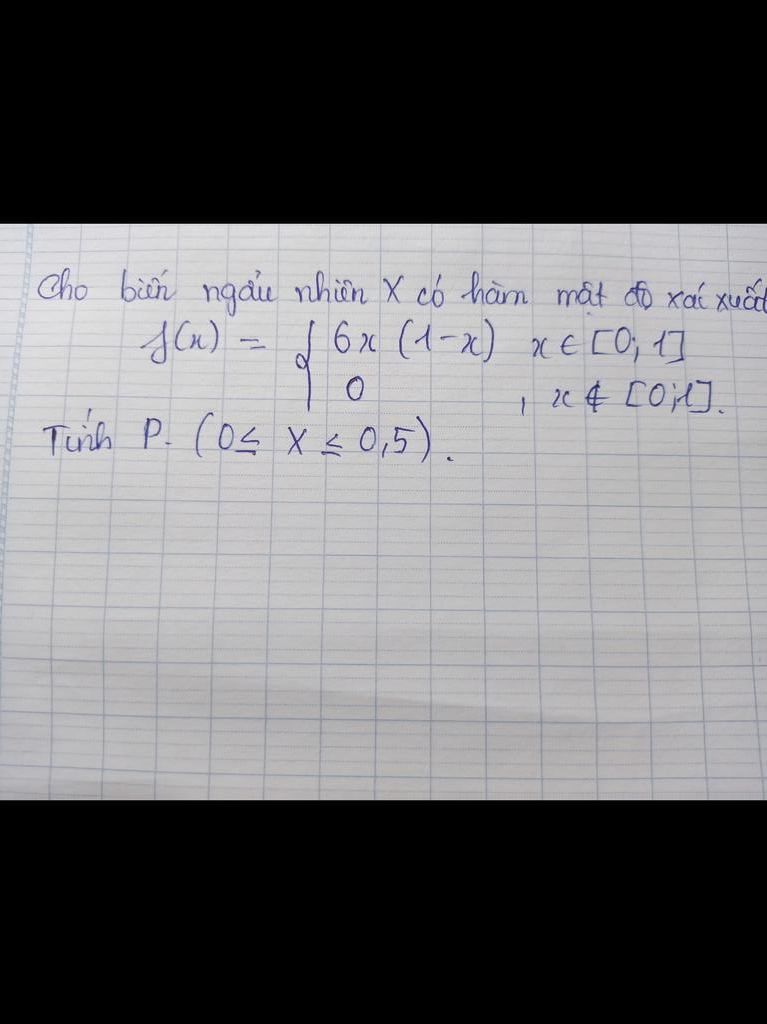 Cho biến ngẫu nhiên X có hàm mật độ xác xuất
f(x) = { 6x (1-x) x ∈ [0; 1]
0 , x ∉ [0;1].
Tính P. (0 ≤ X ≤ 0,5).